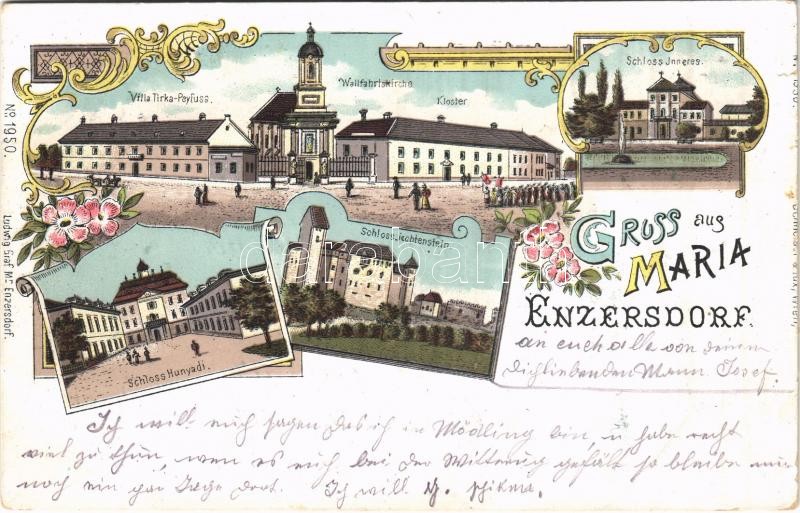 Villa Tirka-Peyfuss.
Wallfahrtskirche
Kloster
Schloss Jnneres.
No. 1950.
Ludwig Graf Ma Enzersdorf.
Schloss Liechtenstein
Schloss Hunyadi.
Gruss aus
Maria
Enzersdorf.
an euch alle von deinem
dichliebenden Mann. Josef.
Ich will euch sagen das ich in Mödling bin, u habe recht
viel zu thun, wen es euch bei der Witterung gefält so bleibe
noch ein par Tage dort. Ich will